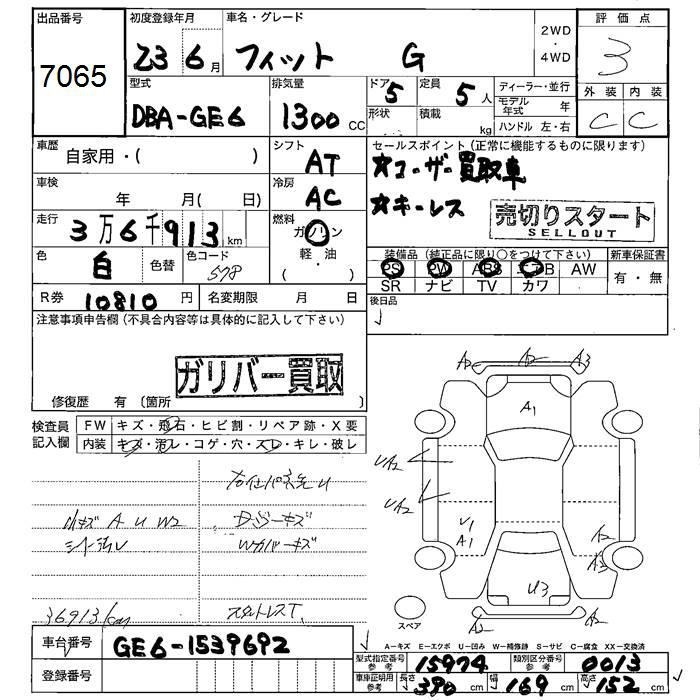 出品番号
7065
初度登録年月
23 6 月
車名・グレード
フィット G
2WD
・
4WD
評価点
3
外装 内装
C C
型式
DBA-GE6
排気量
1300 CC
ドア
5
形状
定員
5 人
積載
kg
ディーラー・並行
モデル年式 年
ハンドル 左・右
車歴
自家用・( )
シフト
AT
車検
年 月( 日)
冷房
AC
走行
3万6千913 km
燃料
ガソリン
軽・油
( )
色
白
色替
色コード
578
R券 10810 円
名変期限 月 日
セールスポイント(正常に機能するものに限ります)
★ユーザー買取車
★キーレス
売切りスタート
SELLOUT
装備品(純正品に限り○をつけて下さい)
PS PW ABS エアB AW
SR ナビ TV カワ
新車保証書
有・無
後日品
注意事項申告欄(不具合内容等は具体的に記入して下さい)
ガリバー買取
修復歴 有(箇所 )
検査員
記入欄
FW キズ・飛石・ヒビ割・リペア跡・X要
内装 キズ・汚レ・コゲ・穴・スレ・キレ・破レ
小キズ A U W2
36913/km
A2 A3
A1
UA2
UA2
U1
A1
A2
A3
U3
A2
A2
スペア
A-キズ E-エクボ U-凹み W-補修跡 S-サビ C-腐食 XX-交換済
車台番号 GE6-1539692
登録番号
型式指定番号
参考
15974
類別区分番号
参考
0013
車庫証明用
参考
長さ 390 cm 幅 169 cm 高さ 152 cm